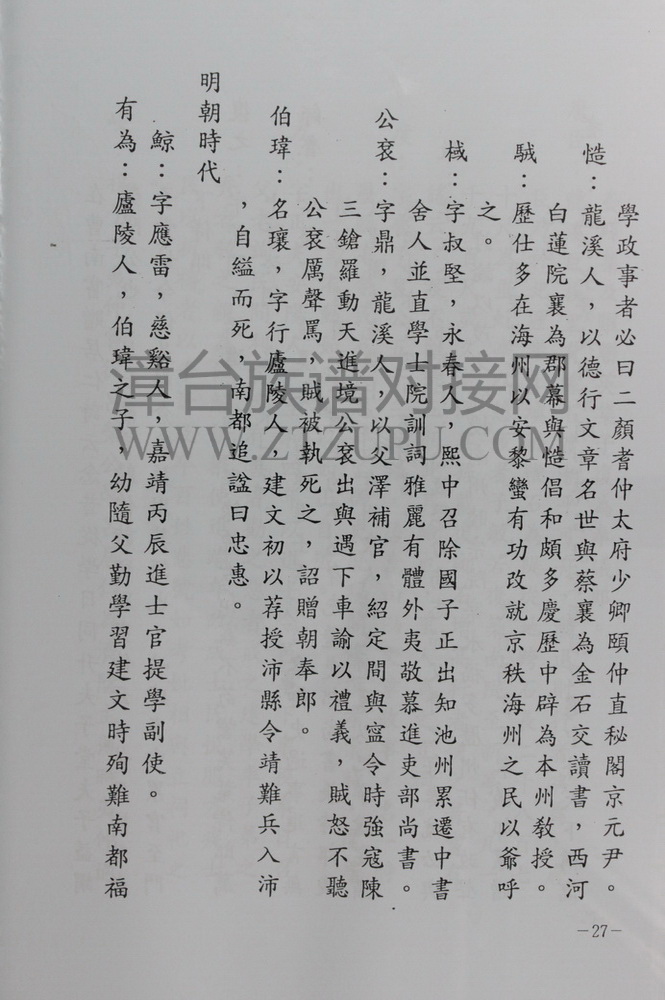 學政事者必曰二顏耆仲太府少卿頤仲直秘閣京元尹。
慥：龍溪人，以德行文章名世與蔡襄為金石交讀書，西河
白蓮院襄為郡幕與慥倡和頗多慶歷中辟為本州教授。
駥：歷仕多在海州以安黎蠻有功改就京秩海州之民以爺呼
之。
棫：字叔堅，永春人，熙中召除國子正出知池州累遷中書
舍人並直學士院訓詞雅麗有體外夷敬慕進吏部尚書。
公衮：字鼎，龍溪人，以父澤補官，紹定間與寍令時強寇陳
三鎗羅動天進境公衮出與遇下車諭以禮義，賊怒不聽
公衮厲聲罵，賊被執死之，詔贈朝奉郎。
伯瑋：名瓌，字行廬陵人，建文初以荐授沛縣令靖難兵入沛
，自縊而死，南都追諡曰忠惠。
明朝時代
鯨：字應雷，慈谿人，嘉靖丙辰進士官提學副使。
有為：廬陵人，伯瑋之子，幼隨父勤學習建文時殉難南都福
漳台族谱对接网
WWW.ZTZUPU.COM
－27－